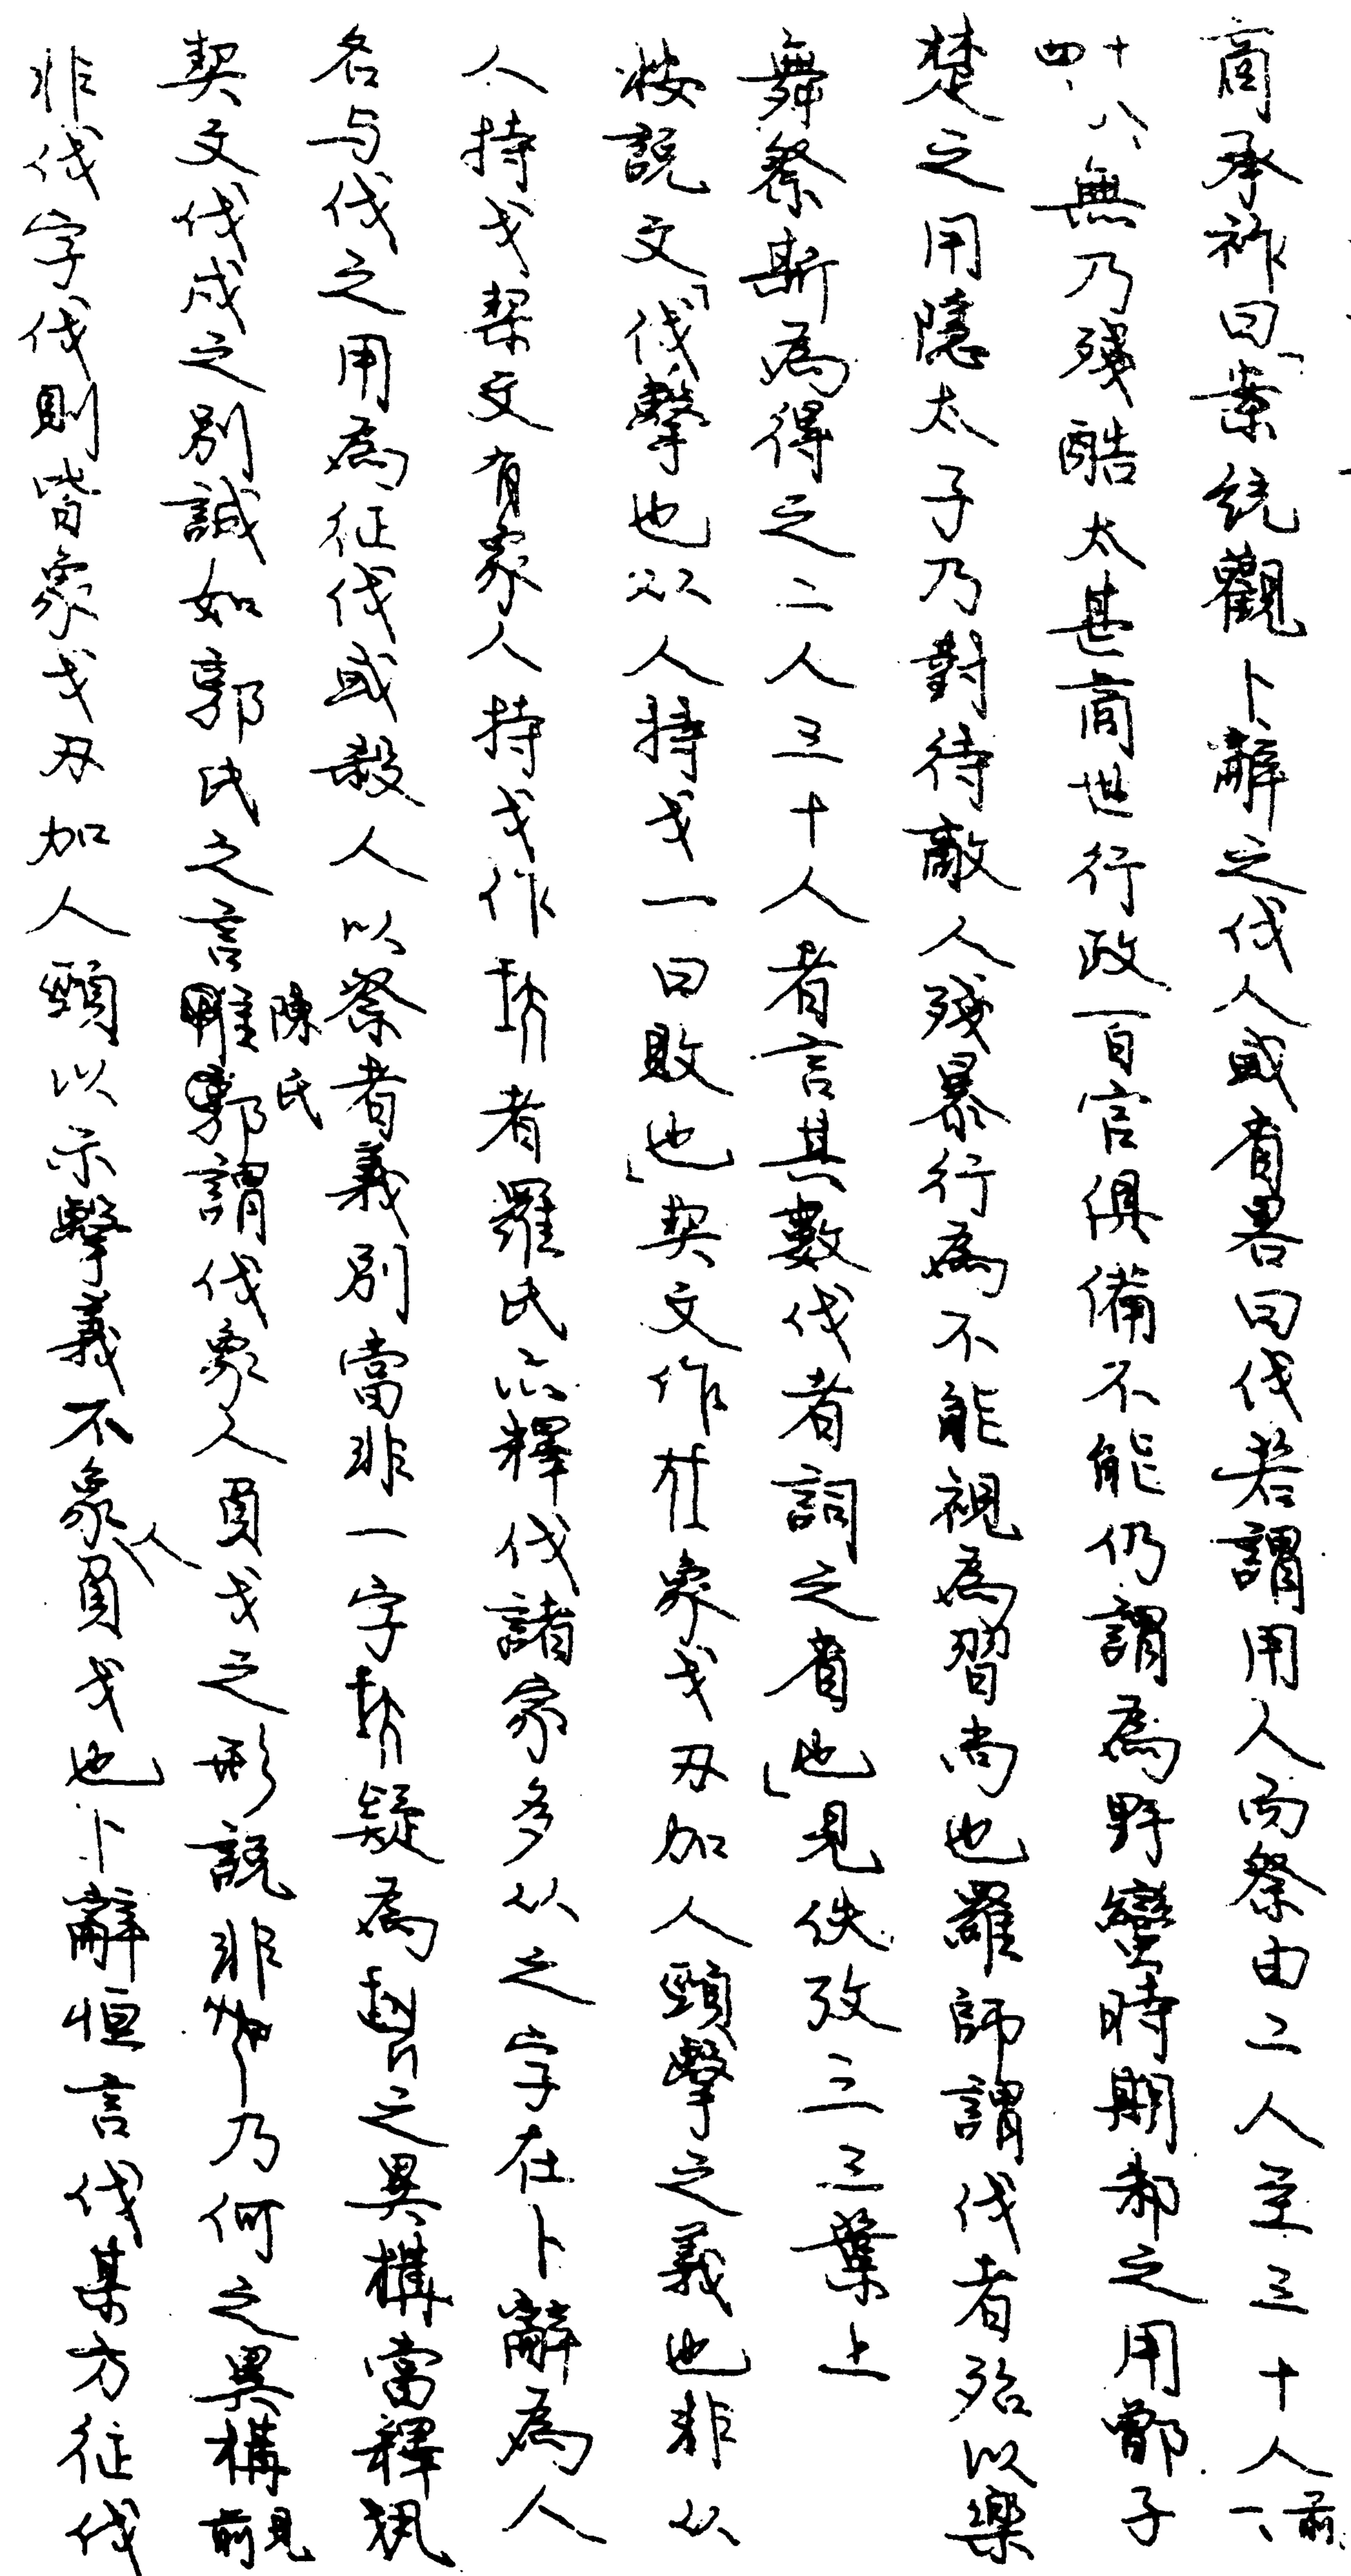 商承祚曰「案統觀卜辭之伐人或省畧曰伐若謂用人而祭由二人至三十人前、一、
十八、四、無乃殘酷太甚商世行政百官俱備不能仍謂為野蠻時期邾之用鄫子
楚之用隱太子乃對待敵人殘暴行為不能視為習尚也羅師謂伐者殆以樂
舞祭斯為得之二人三十人者言其數伐者詞之省也」見佚攷三三葉上
按說文「伐擊也从人持戈一曰敗也」契文作象戈刃加人頸擊之義也非从
人持戈栔文有象人持戈作者羅氏亦釋伐諸家多从之字在卜辭為人
名与伐之用為征伐或殺人以祭者義別當非一字疑為之異構當釋𢦔
契文伐戍之別誠如郭氏之言陳氏謂伐象人負戈之形說非乃何之異構見前
非伐字伐則皆象戈刃加人頸以示擊義不象人負戈也卜辭恒言伐某方征伐